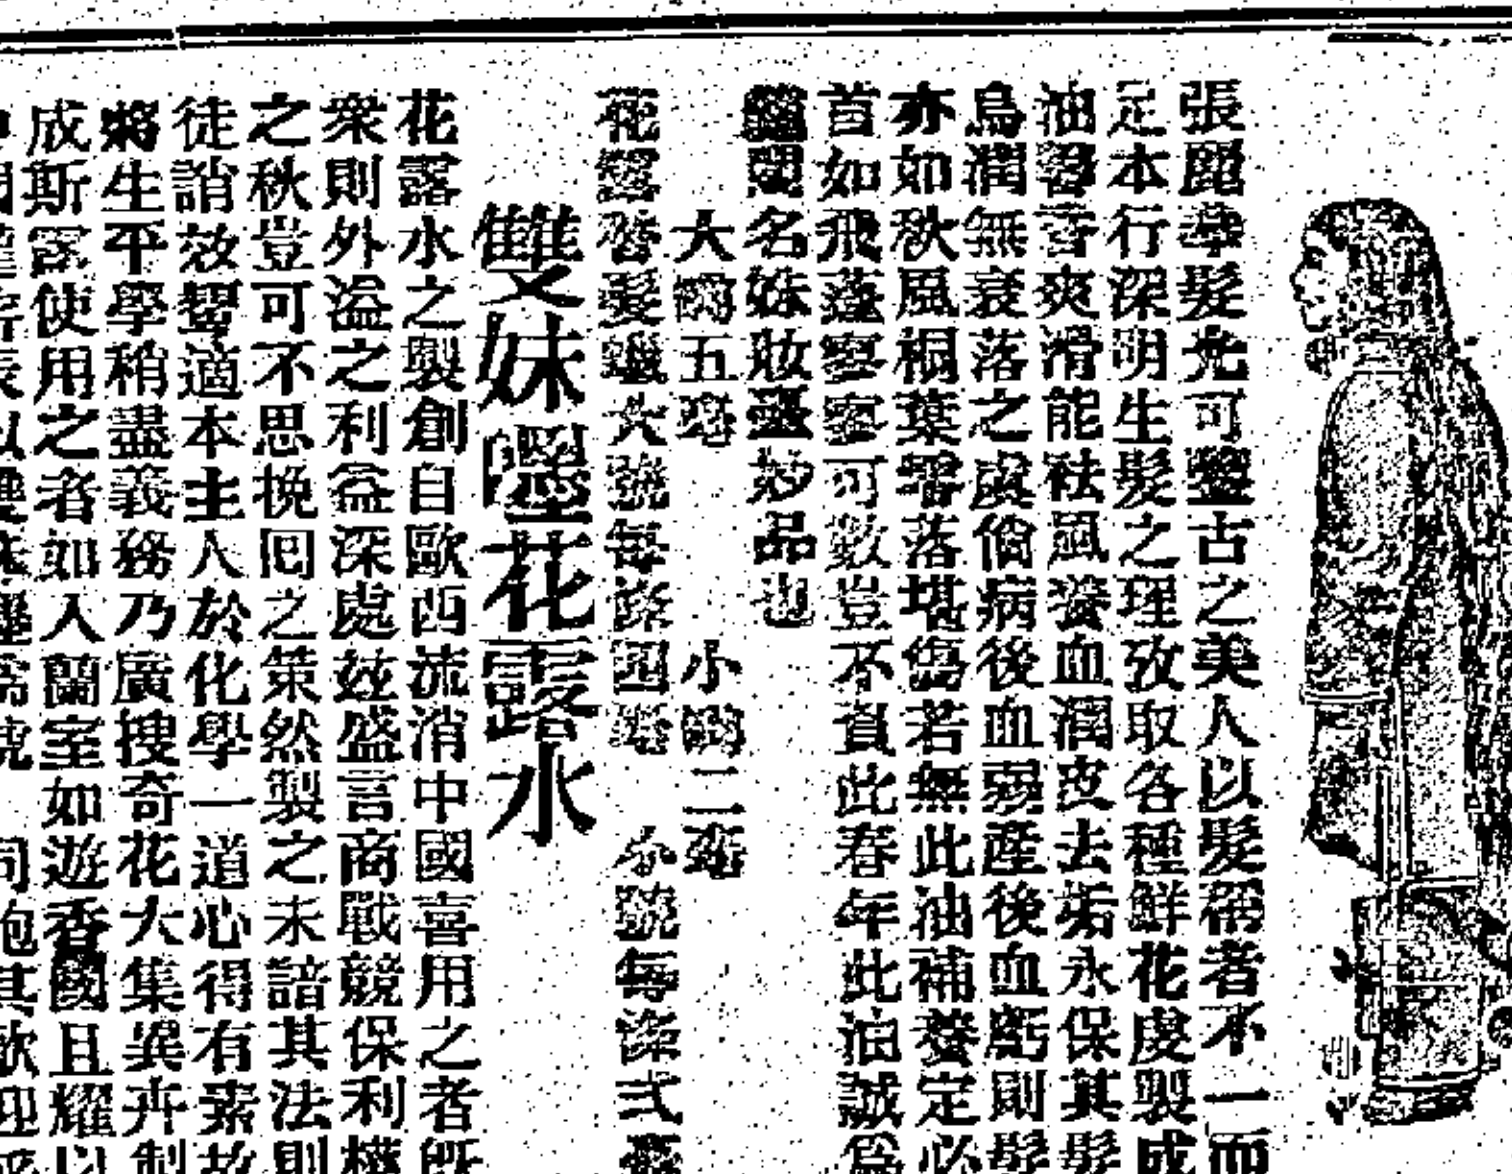 張麗華髮光可鑒古之美人以髮稱者不一而
足本行深明生髮之理攷取各種鮮花虔製成
油馨香爽滑能祛風養血潤皮去垢永保其髮
烏潤無衰落之虞倘病後血弱產後血虧則髮
亦如秋風桐葉零落堪傷若無此油補養定必
首如飛蓬寥寥可數豈不負此春年此油誠爲
名妹妝臺妙品也
大 五毫 小 二毫
花露 髮 大號每 四 小號每 弍
雙妹嚜花露水
花露水之製創自歐西流消中國喜用之者旣
衆則外溢之利益深處玆盛言商戰競保利權
之秋豈可不思挽囘之策然製之未諳其法則
徒誚效顰適本主人於化學一道心得有素故
將生平學稍盡義務乃廣搜奇花大集異卉制
成斯露使用之者如入蘭室如遊香國且耀以